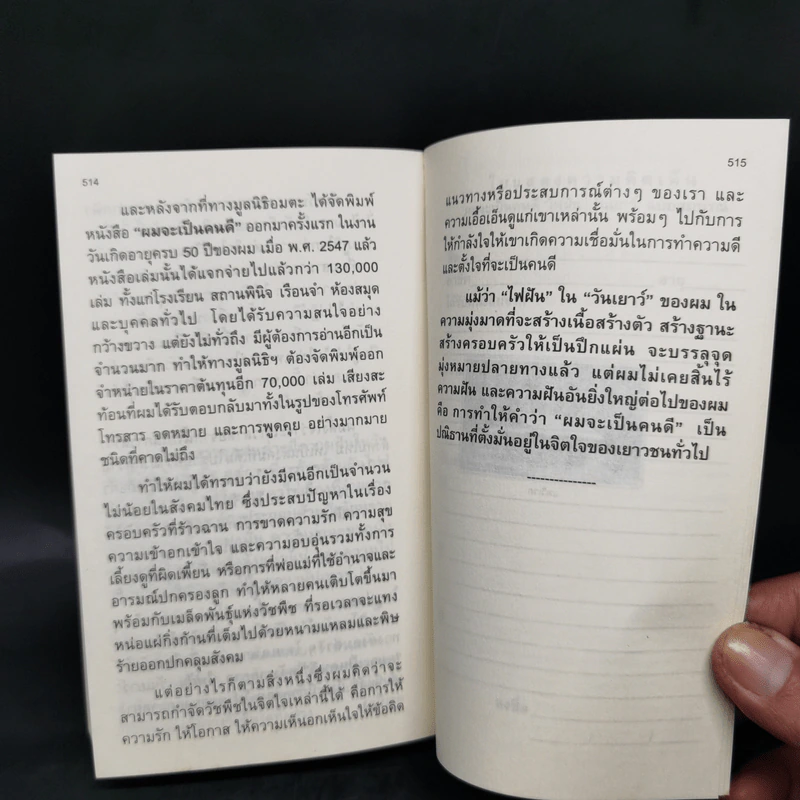 514
และหลังจากที่ทางมูลนิธิอมตะ ได้จัดพิมพ์
หนังสือ "ผมจะเป็นคนดี" ออกมาครั้งแรก ในงาน
วันเกิดอายุครบ 50 ปีของผม เมื่อ พ.ศ. 2547 แล้ว
หนังสือเล่มนั้นได้แจกจ่ายไปแล้วกว่า 130,000
เล่ม ทั้งแก่โรงเรียน สถานพินิจ เรือนจำ ห้องสมุด
และบุคคลทั่วไป โดยได้รับความสนใจอยาง
กว้างขวาง แต่ยังไม่ทั่วถึง มีผู้ต้องการอ่านอีกเป็น
จำนวนมาก ทำให้ทางมูลนิธิฯ ต้องจัดพิมพ์ออก
จำหน่ายในราคาต้นทุนอีก 70,000 เล่ม เสียงสะ
ท้อนที่ผมได้รับตอบกลับมาทั้งในรูปของโทรศัพท์
โทรสาร จดหมาย และการพูดคุย อย่างมากมาย
ชนิดที่คาดไม่ถึง
ทำให้ผมได้ทราบว่ายังมีคนอีกเป็นจำนวน
ไม่น้อยในสังคมไทย ซึ่งประสบปัญหาในเรื่อง
ครอบครัวที่ร้าวฉาน การขาดความรัก ความสุข
ความเข้าอกเข้าใจ และความอบอุ่นรวมทั้งการ
เลี้ยงดูที่ผิดเพี้ยน หรือการที่พ่อแม่ที่ใช้อำนาจและ
อารมณ์ปกครองลูก ทำให้หลายคนเติบโตขึ้นมา
พร้อมกับเมล็ดพันธุ์แห่งวัชพืช ที่รอเวลาจะแทง
หน่อแผ่กิ่งก้านที่เต็มไปด้วยหนามแหลมและพิษ
ร้ายออกปกคลุมสังคม
แต่อย่างไรก็ตามสิ่งหนึ่งซึ่งผมคิดว่าจะ
สามารถกำจัดวัชพืชในจิตใจเหล่านี้ได้ คือการให้
ความรัก ให้โอกาส ให้ความเห็นอกเห็นใจให้ข้อคิด
515
แนวทางหรือประสบการณ์ต่างๆ ของเรา และ
ความเอื้อเอ็นดูแก่เขาเหล่านั้น พร้อมๆ ไปกับการ
ให้กำลังใจให้เขาเกิดความเชื่อมั่นในการทำความดี
และตั้งใจที่จะเป็นคนดี
แม้ว่า "ไฟฝัน" ใน "วันเยาว์" ของผม ใน
ความมุ่งมาดที่จะสร้างเนื้อสร้างตัว สร้างฐานะ
สร้างครอบครัวให้เป็นปึกแผ่น จะบรรลุจุด
มุ่งหมายปลายทางแล้ว แต่ผมไม่เคยสิ้นไร้
ความฝัน และความฝันอันยิ่งใหญ่ต่อไปของผม
คือ การทำให้คำว่า "ผมจะเป็นคนดี" เป็น
ปณิธานที่ตั้งมั่นอยู่ในจิตใจของเยาวชนทั่วไป